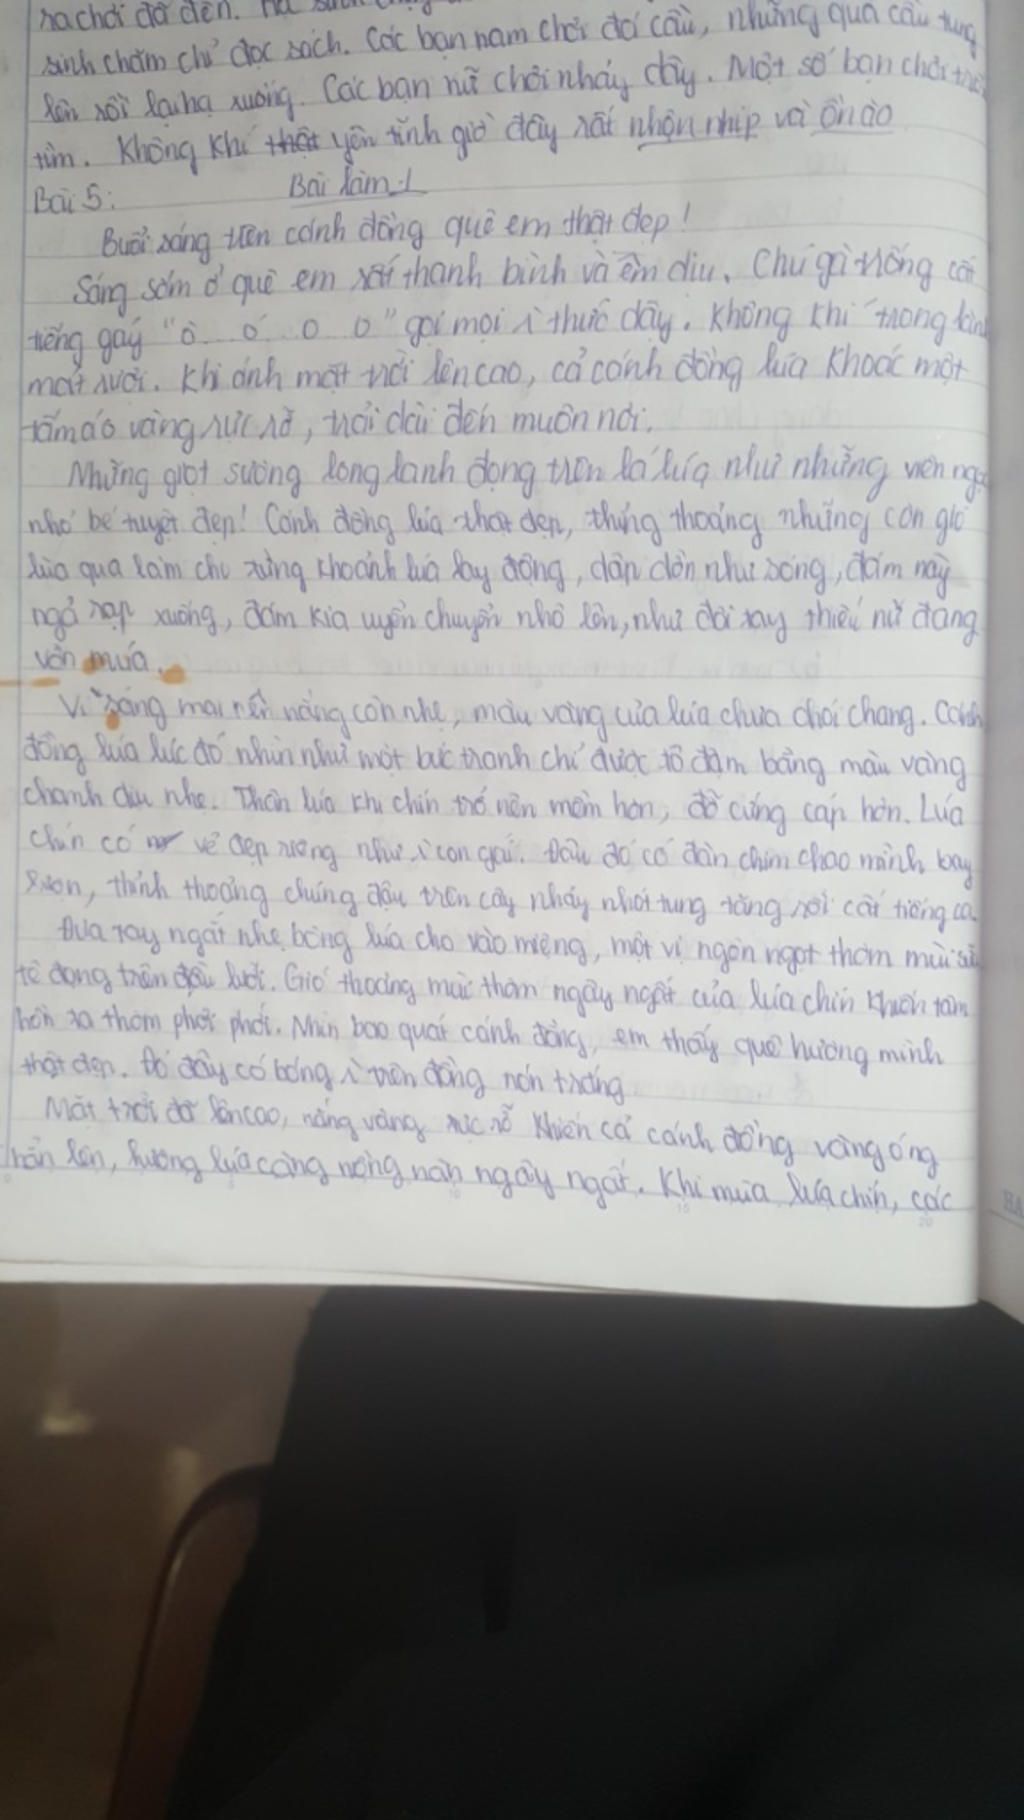 ra chơi đã đến.
sinh chăm chỉ đọc sách. Các bạn nam chơi đá cầu, những quả cầu tung
lên rồi lại hạ xuống. Các bạn nữ chơi nhảy dây. Một số bạn chơi
tìm. Không khí thật yên tĩnh giờ đây rất nhộn nhịp và ồn ào
Bài 5: Bài làm 1
Buổi sáng trên cánh đồng quê em thật đẹp!
Sáng sớm ở quê em rất thanh bình và êm dịu. Chú gà trống cất
tiếng gáy "ò ó o o" gọi mọi ì thức dậy. Không khí trong lành
mát rười. Khi ánh mặt trời lên cao, cả cánh đồng lúa khoác một
tấm áo vàng rực rỡ, trải dài đến muôn nơi.
Những giọt sương long lanh đọng trên lá lúa như những viên ngọc
nhỏ bé tuyệt đẹp! Cánh đồng lúa thật đẹp, thỉng thoảng những cơn gió
lùa qua làm cho từng khoảnh lúa lay động, dập dờn như sóng, đám này
ngả rạp xuống, đám kia uyển chuyển nhô lên, như đôi tay thiếu nữ đang
vờn múa.
Vì sáng mai nên nắng còn nhẹ, màu vàng của lúa chưa chói chang. Cánh
đồng lúa lúc đó nhìn như một bức tranh chỉ được tô đậm bằng màu vàng
chanh dịu nhẹ. Thân lúa khi chín trở nên mềm hơn, đỡ cứng cáp hơn. Lúa
chín có vẻ đẹp riêng như ì con gái. Đâu đó có đàn chim chao mình bay
lượn, thỉnh thoảng chúng đậu trên cây nhảy nhót tung tăng rồi cất tiếng ca.
Đưa tay ngắt nhẹ bông lúa cho vào miệng, một vị ngon ngọt thơm mùi sữa
tê đọng trên đầu lưỡi. Gió thoảng mùi thơm ngây ngất của lúa chín khiến tâm
hồn ta thơm phơi phới. Nhìn bao quát cánh đồng, em thấy quê hương mình
thật đẹp. Đó đây có bóng ì trên đồng nón trắng
Mặt trời đã lên cao, nắng vàng rực rỡ khiến cả cánh đồng vàng óng
hẳn lên, hương lúa càng nồng nàn ngây ngất. Khi mùa lúa chín, các